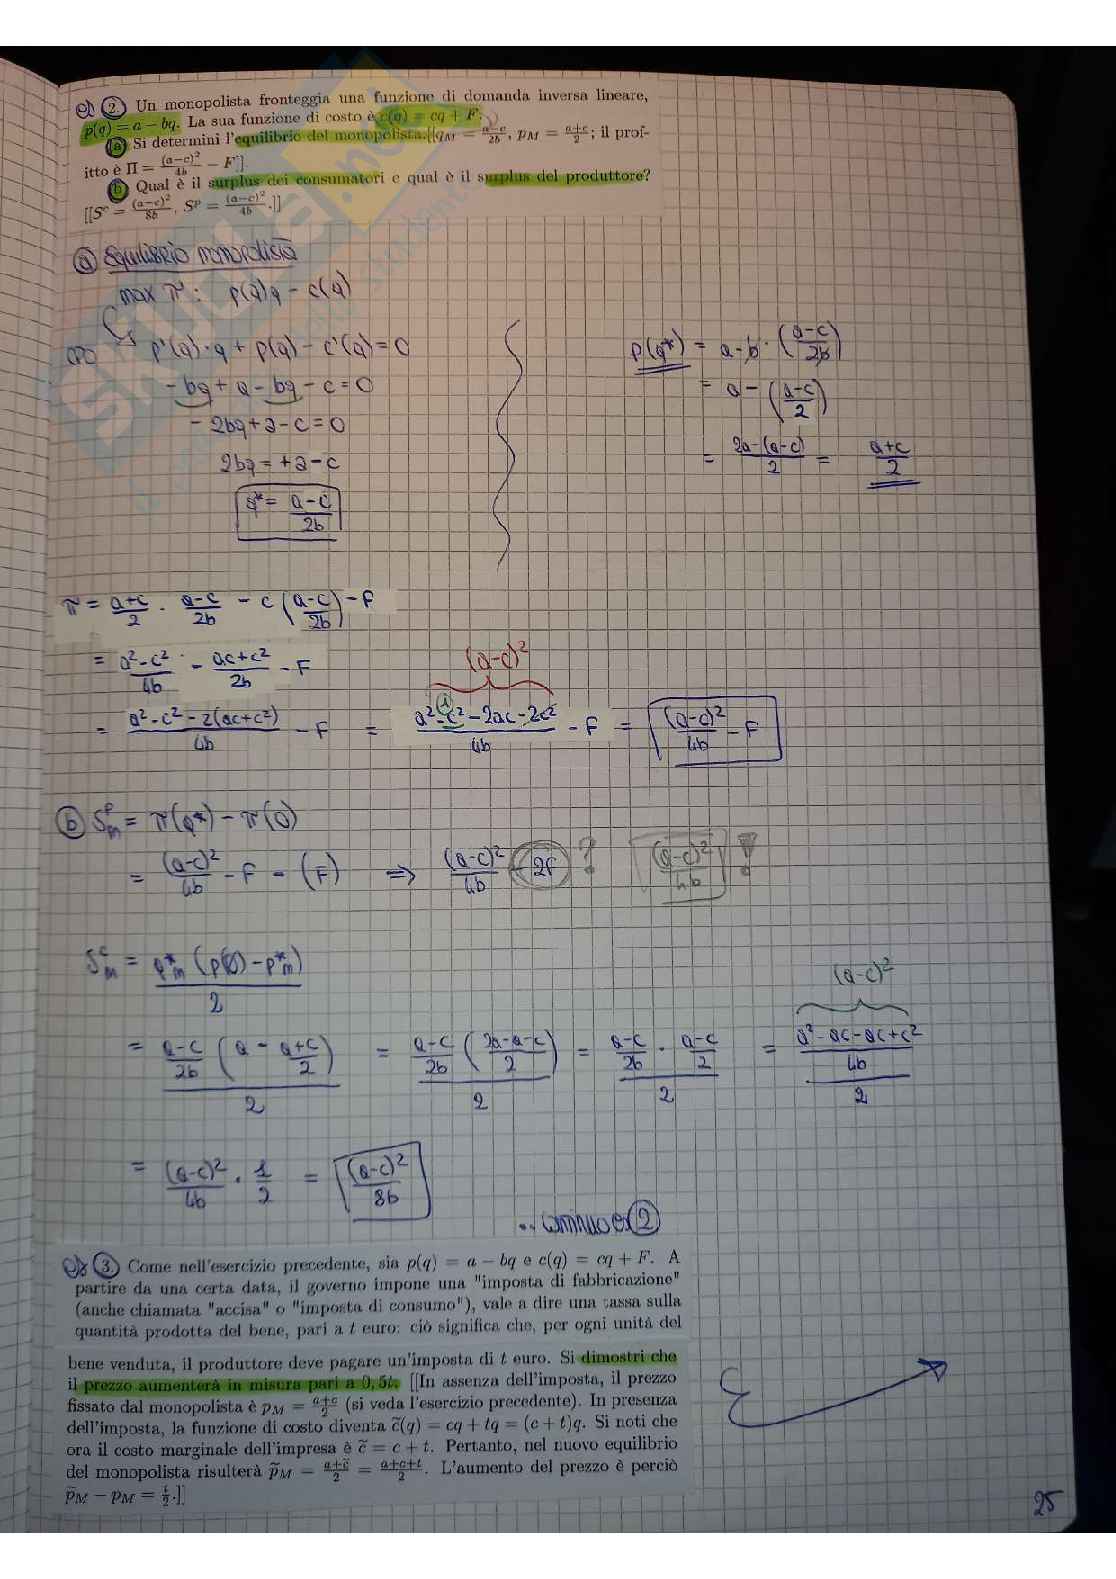 es 2. Un monopolista fronteggia una funzione di domanda inversa lineare,
p(q) = a − bq. La sua funzione di costo è c(q) = cq + F.
(a) Si determini l'equilibrio del monopolista.[[q_M = (a−c)/2b, p_M = (a+c)/2; il prof-
itto è Π = (a−c)²/4b − F]].
(b) Qual è il surplus dei consumatori e qual è il surplus del produttore?
[[S^c = (a−c)²/8b, S^p = (a−c)²/4b.]]
(a) EQUILIBRIO MONOPOLISTA
max π : p(q)q − c(q)
CPO p'(q)·q + p(q) − c'(q) = 0
− bq + a − bq − c = 0
− 2bq + a − c = 0
2bq = + a − c
q* = (a−c)/2b
p(q*) = a − b · ((a−c)/2b)
= a − ((a−c)/2)
= (2a−(a−c))/2 = (a+c)/2
π = (a+c)/2 · (a−c)/2b − c ((a−c)/2b) − F
= (a²−c²)/4b − (ac+c²)/2b − F
(a−c)²
= (a²−c²−2(ac+c²))/4b − F = (a²−c²−2ac−2c²)/4b − F = (a−c)²/4b − F
(b) S^p_m = π(q*) − π(0)
= (a−c)²/4b − F − (F) ⇒ (a−c)²/4b − 2F ? (a−c)²/4b !
S^c_m = q*_m (p(0) − p*_m)/2
(a−c)²
= (a−c)/2b (a − (a+c)/2)/2 = (a−c)/2b ((2a−a−c)/2)/2 = (a−c)/2b · (a−c)/2 /2 = (a²−ac−ac+c²)/4b /2
= (a−c)²/4b · 1/2 = (a−c)²/8b
... continuo es 2
es 3. Come nell'esercizio precedente, sia p(q) = a − bq e c(q) = cq + F. A
partire da una certa data, il governo impone una "imposta di fabbricazione"
(anche chiamata "accisa" o "imposta di consumo"), vale a dire una tassa sulla
quantità prodotta del bene, pari a t euro: ciò significa che, per ogni unità del
bene venduta, il produttore deve pagare un'imposta di t euro. Si dimostri che
il prezzo aumenterà in misura pari a 0,5t. [[In assenza dell'imposta, il prezzo
fissato dal monopolista è p_M = (a+c)/2 (si veda l'esercizio precedente). In presenza
dell'imposta, la funzione di costo diventa c̃(q) = cq + tq = (c + t)q. Si noti che
ora il costo marginale dell'impresa è c̃ = c + t. Pertanto, nel nuovo equilibrio
del monopolista risulterà p̃_M = (a+c̃)/2 = (a+c+t)/2. L'aumento del prezzo è perciò
p̃_M − p_M = t/2.]]
25